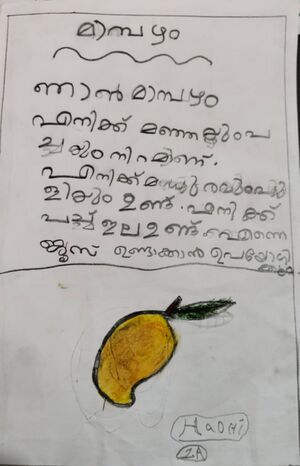 മാമ്പഴം
ഞാൻ മാമ്പഴം
എനിക്ക് മഞ്ഞയുംപ
ച്ചയും നിറമാണ്.
എനിക്ക് മധുരവുംപു
ളിയും ഉണ്ട്. എനിക്ക്
പച്ച ഇല ഉണ്ട്. എന്നെ
ജ്യൂസ് ഉണ്ടാക്കാൻ ഉപയോഗി
ക്കും
HaDHi
2A